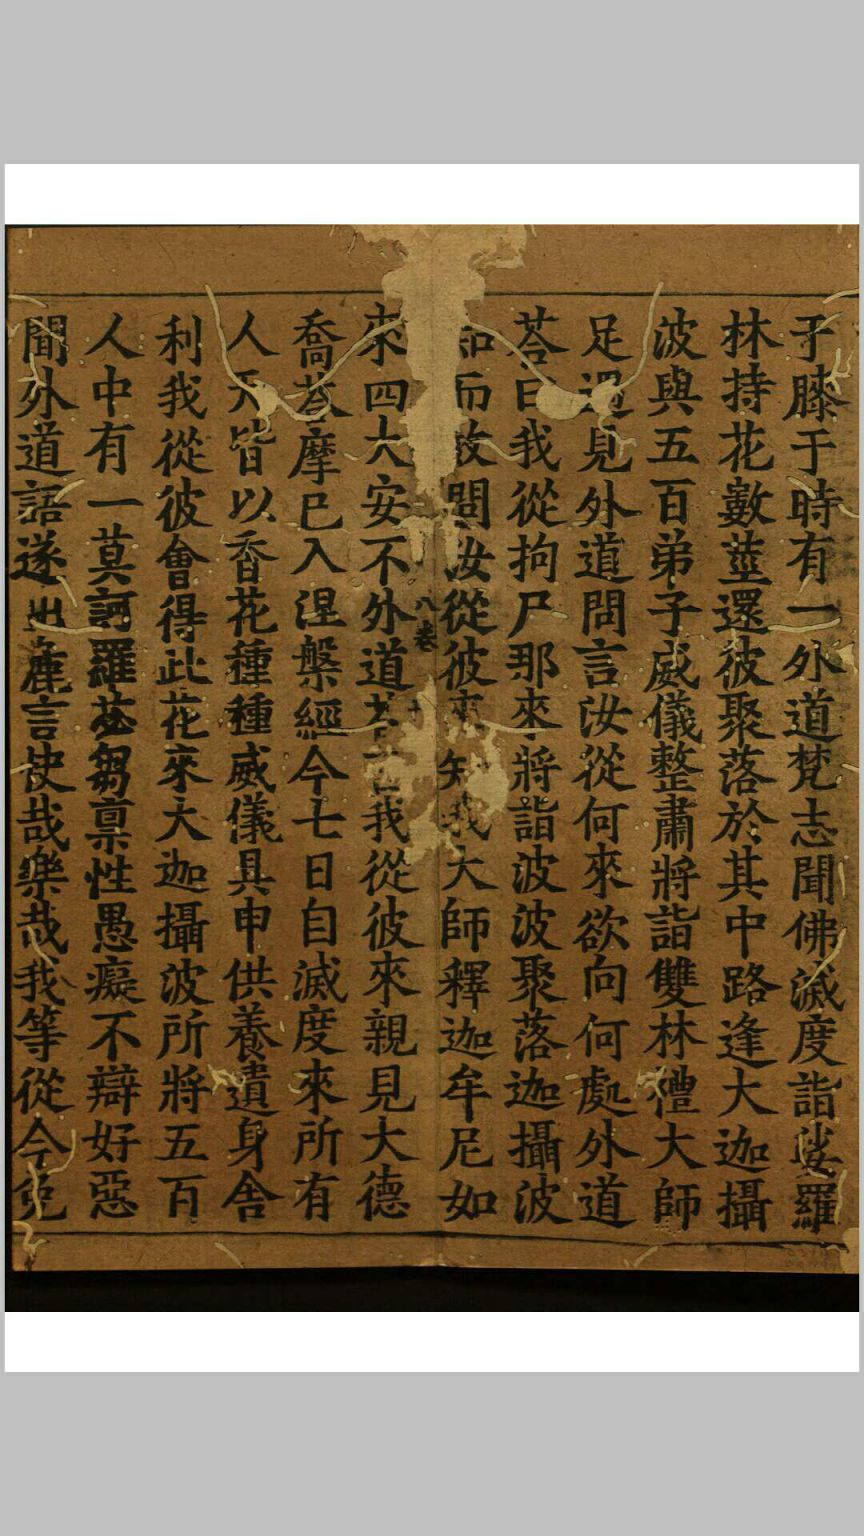 子膝于時有一外道梵志聞佛滅度詣娑羅
林持花數莖還彼聚落於其中路逢大迦攝
波與五百弟子威儀整肅將詣雙林禮大師
足遇見外道問言汝從何來欲向何處外道
荅曰我從拘尸那來將詣波波聚落迦攝波
知而故問汝從彼來知我大師釋迦牟尼如
八卷
來四大安不外道荅言我從彼來親見大德
喬荅摩已入涅槃經今七日自滅度來所有
人天皆以香花種種威儀具申供養遺身舍
利我從彼會得此花來大迦攝波所將五百
人中有一莫訶羅苾芻稟性愚癡不辯好惡
聞外道語遂出麁言快哉樂哉我等從今免